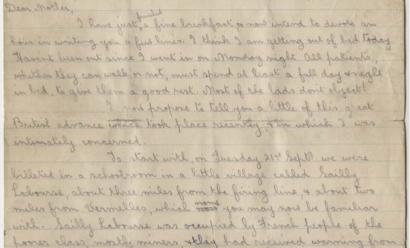 Dear Mother,
finished
I have just, a fine breakfast & now intend to devote an
hour in writing you a few lines. I think I am getting out of bed today.
Havent been out since I went in on Monday night. All patients,
whether they can walk or not, must spend at least a full day & night
in bed, to give them a good rest. Most of the lads dont object!
I now propose to tell you a little of this great
British advance which took place recently & in which I was
intimately concerned.
To start with, on Tuesday 21st Sept we were
billeted in a schoolroom in a little village called Sailly
Labourse, about three miles from the firing line & about two
miles from Vermelles, which name you may now be familiar
with. Sailly Labourse was occupied by French people of the
poorer class, mostly miners, & they had received warning from